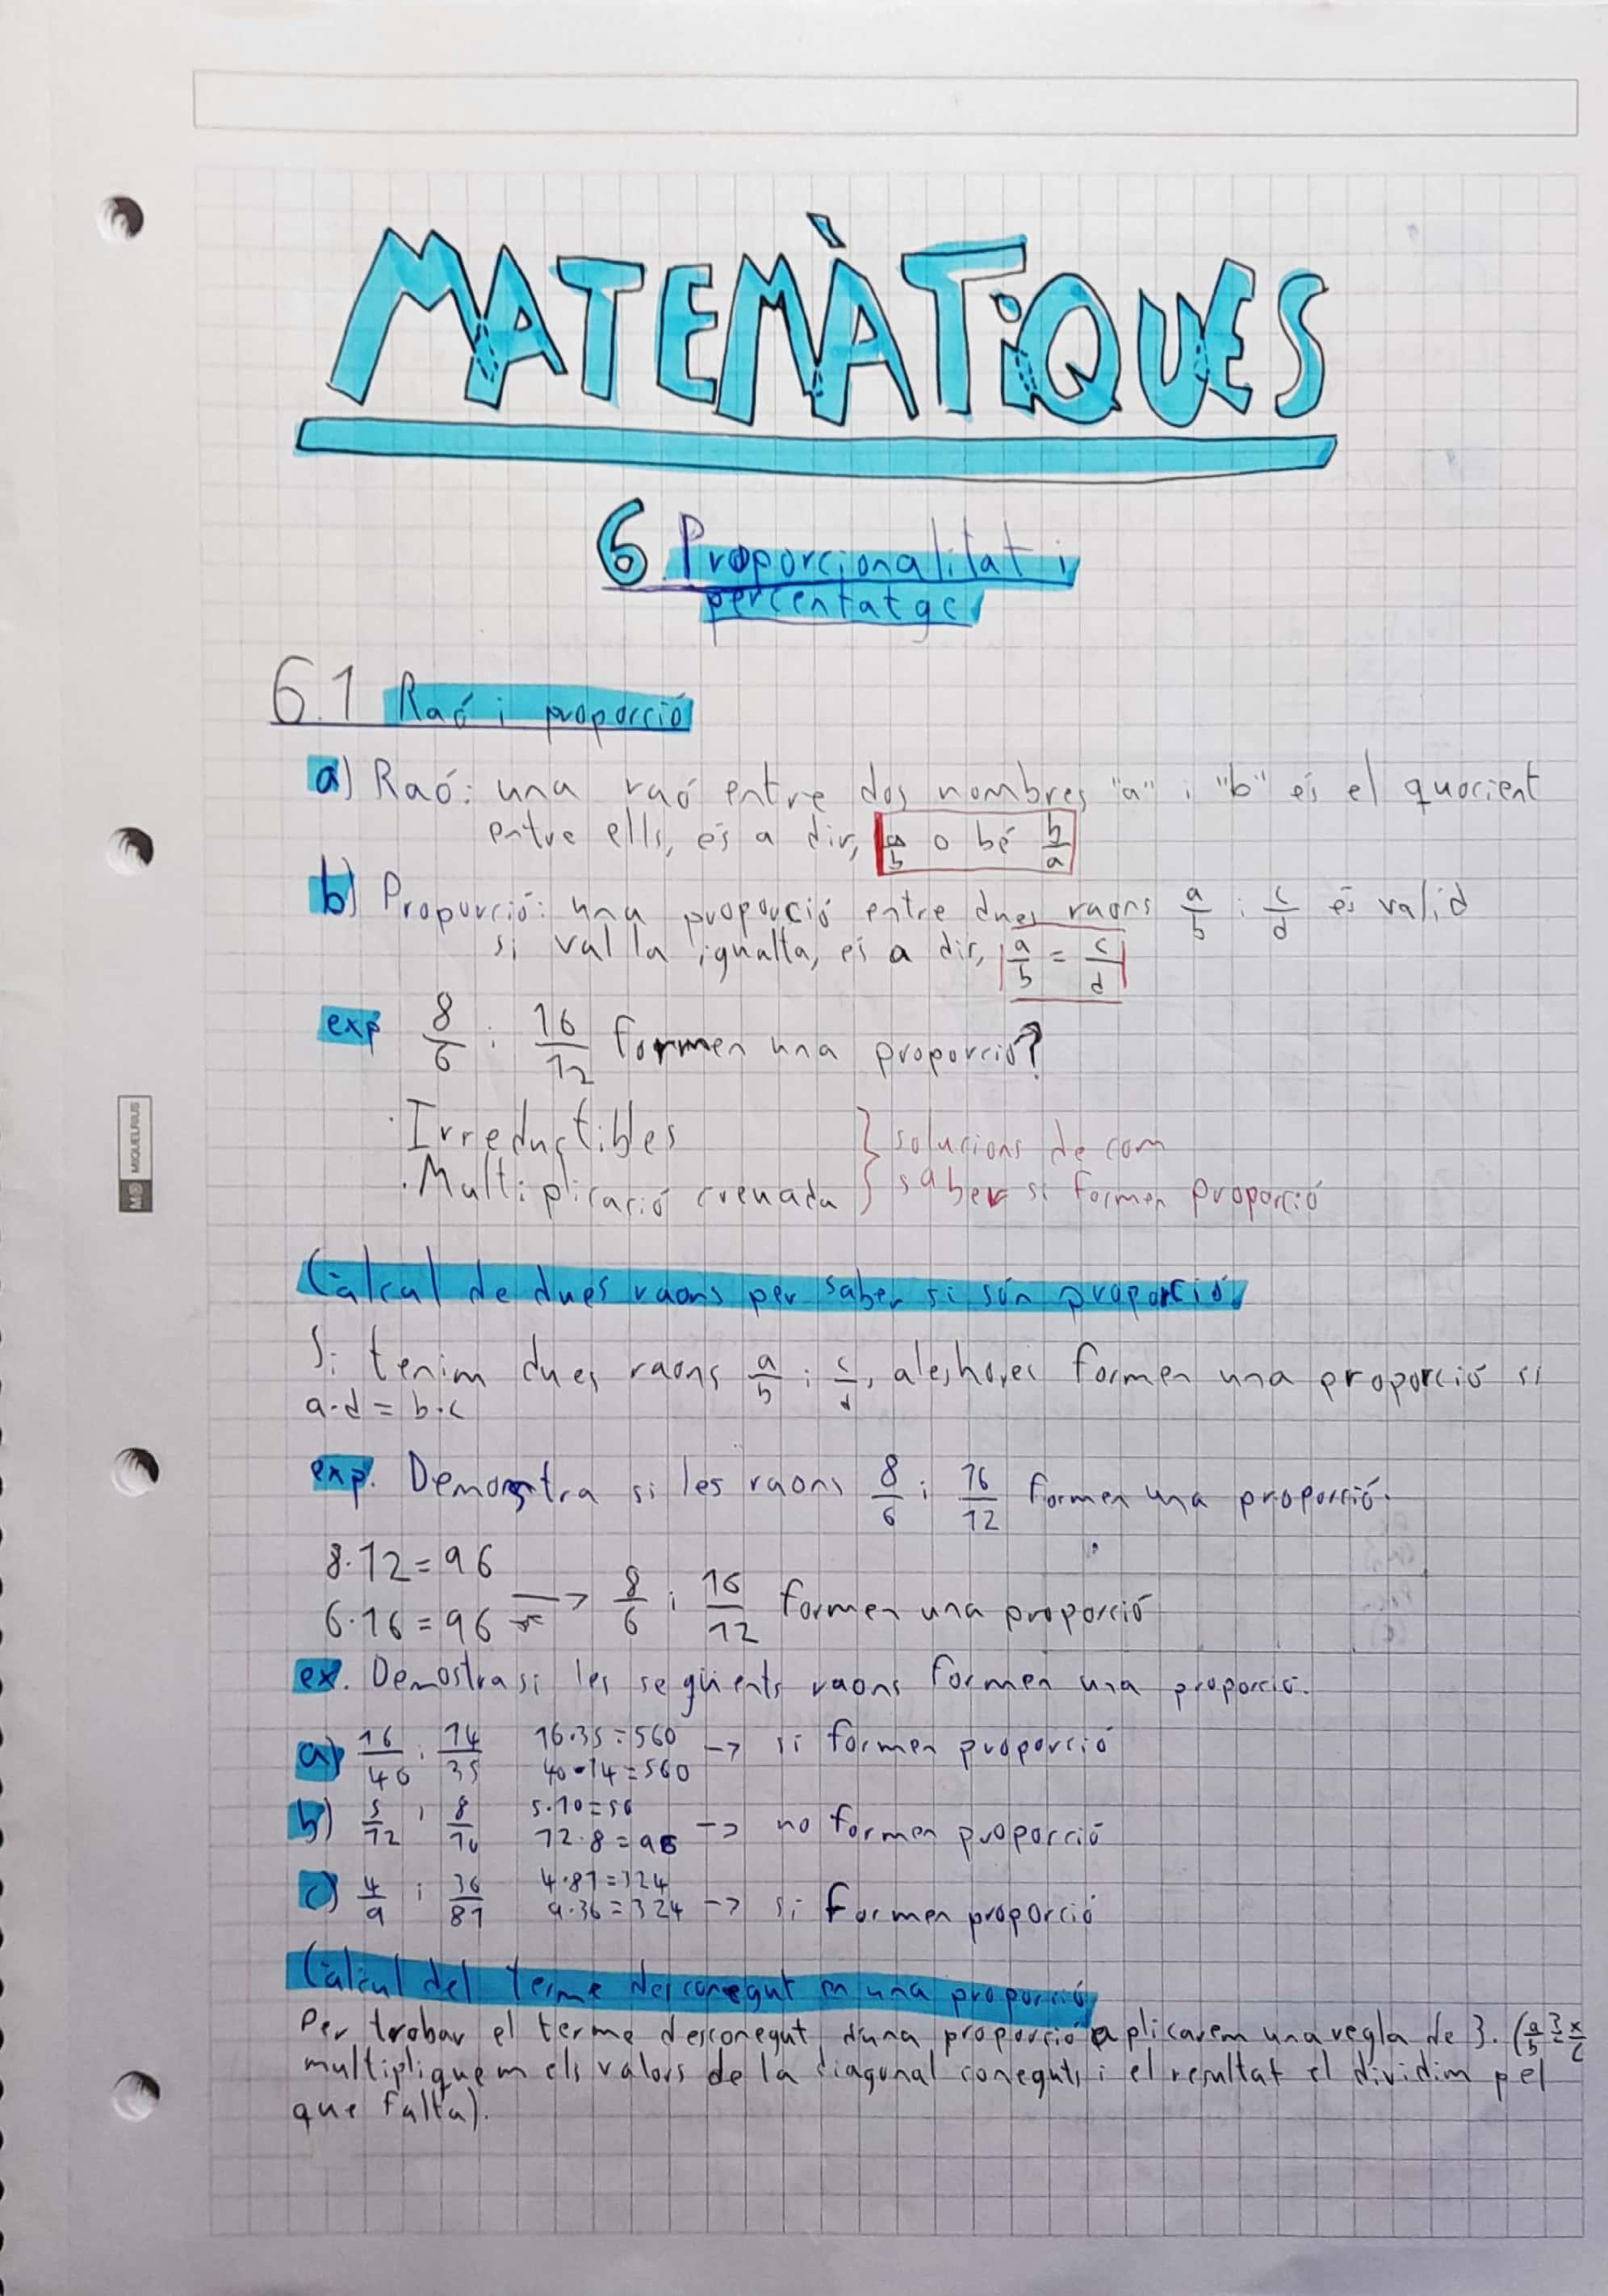 MATEMÀTIQUES
6 Proporcionalitat i
percentatge
6.1 Raó i proporció
a) Raó: una raó entre dos nombres "a" i "b" és el quocient
entre ells, és a dir, a/b o bé b/a
b) Proporció: una proporció entre dues raons a/b i c/d és valid
si val la igualta, és a dir, a/b = c/d
exp 8/6 i 16/12 formen una proporció?
· Irreductibles } solucions de com
· Multiplicació creuada } saber si formen proporció
MIQUELRIUS
Càlcul de dues raons per saber si són proporció
Si tenim dues raons a/b i c/d, aleshores formen una proporció si
a·d = b·c
exp. Demonstra si les raons 8/6 i 16/12 formen una proporció.
8·12=96
6·16=96 → 8/6 i 16/12 formen una proporció
ex. Demostra si les següents raons formen una proporció.
a) 16/40 i 14/35 16·35=560 → si formen proporció
40·14=560
b) 5/12 i 8/10 5·10=50 → no formen proporció
12·8=96
c) 4/9 i 36/81 4·81=324 → si formen proporció
9·36=324
Càlcul del terme desconegut en una proporció
Per trobar el terme desconegut d'una proporció aplicarem una regla de 3. (a/b = x/c
multipliquem els valors de la diagonal coneguts i el resultat el dividim pel
que falta).